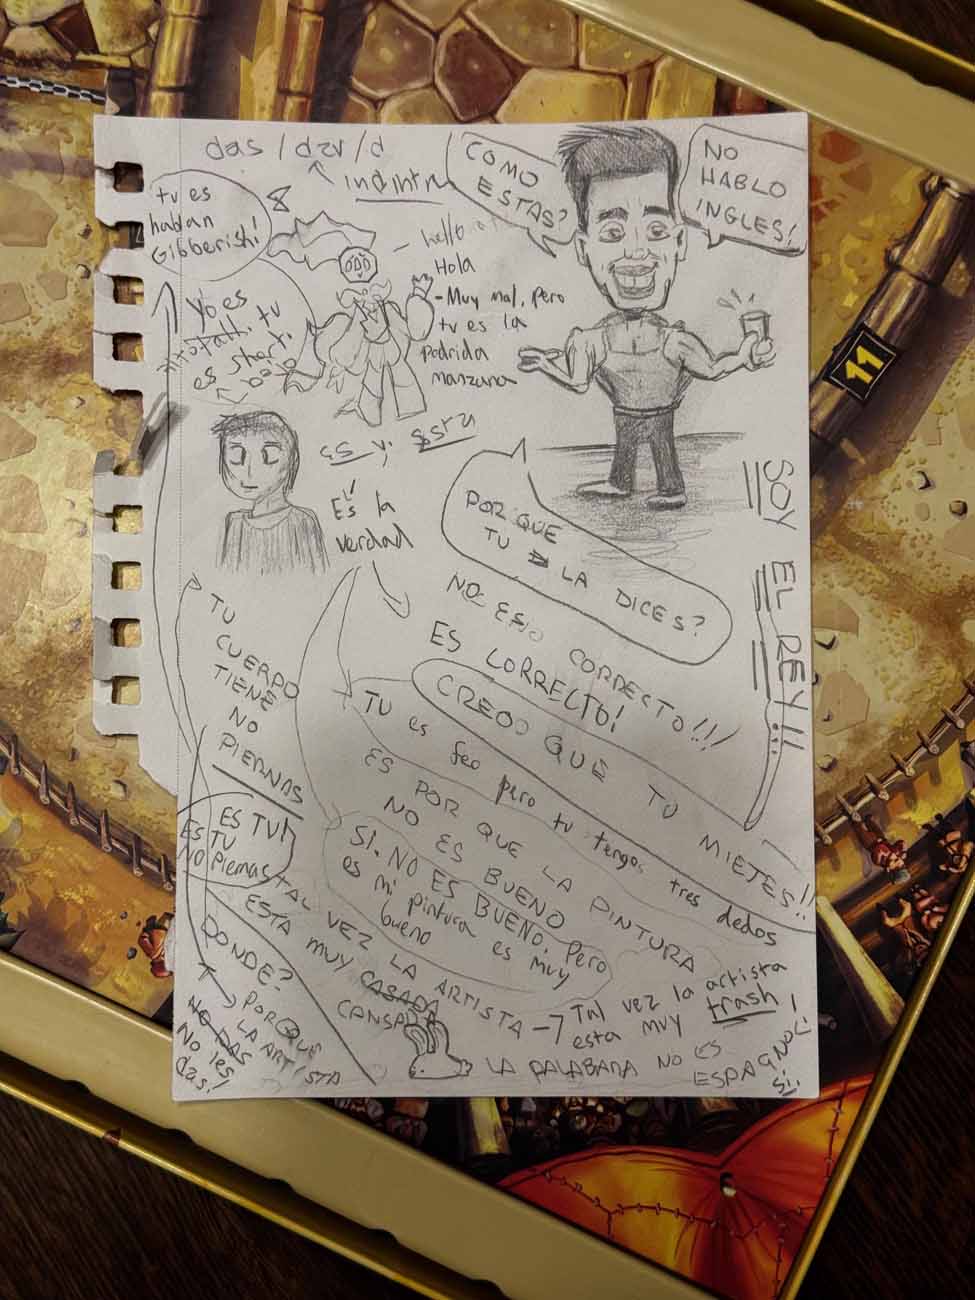 das / dar / d
COMO
ESTAS?
NO
HABLO
INGLES!
tu es
hablan
Gibberish!
hello
Hola
- Muy mal, pero
tu es la
podrida
manzana
Yo es
tu
es short.
11
es y esta
Es la
verdad
SOY EL REY!!!
POR QUE
TU LA DICES?
NO ESTO CORRECTO!!!
ES CORRECTO!
CREO QUE TU MIETES!!
TU es feo pero tu tengas tres dedos
ES POR QUE LA PINTURA
NO ES BUENO
SI. NO ES BUENO, pero
es mi pintura es muy
bueno
TU
CUERPO
TIENE
NO
PIERNAS
ES TU!
ES TU
NO Piernas
TAL VEZ LA ARTISTA
ESTA MUY CASADA
CANSADA
Tal vez la artista
esta muy trash!
LA PALABARA NO ES
ESPAGNOL!
Si!
DONDE?
PORQUE
LA ARTISTA
NO DAS
No les
das!